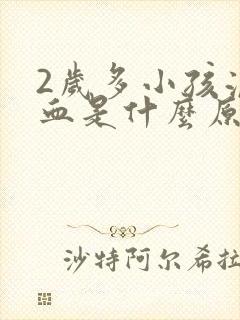 2歲多小孩
血是什麼原
沙特阿尔希拉